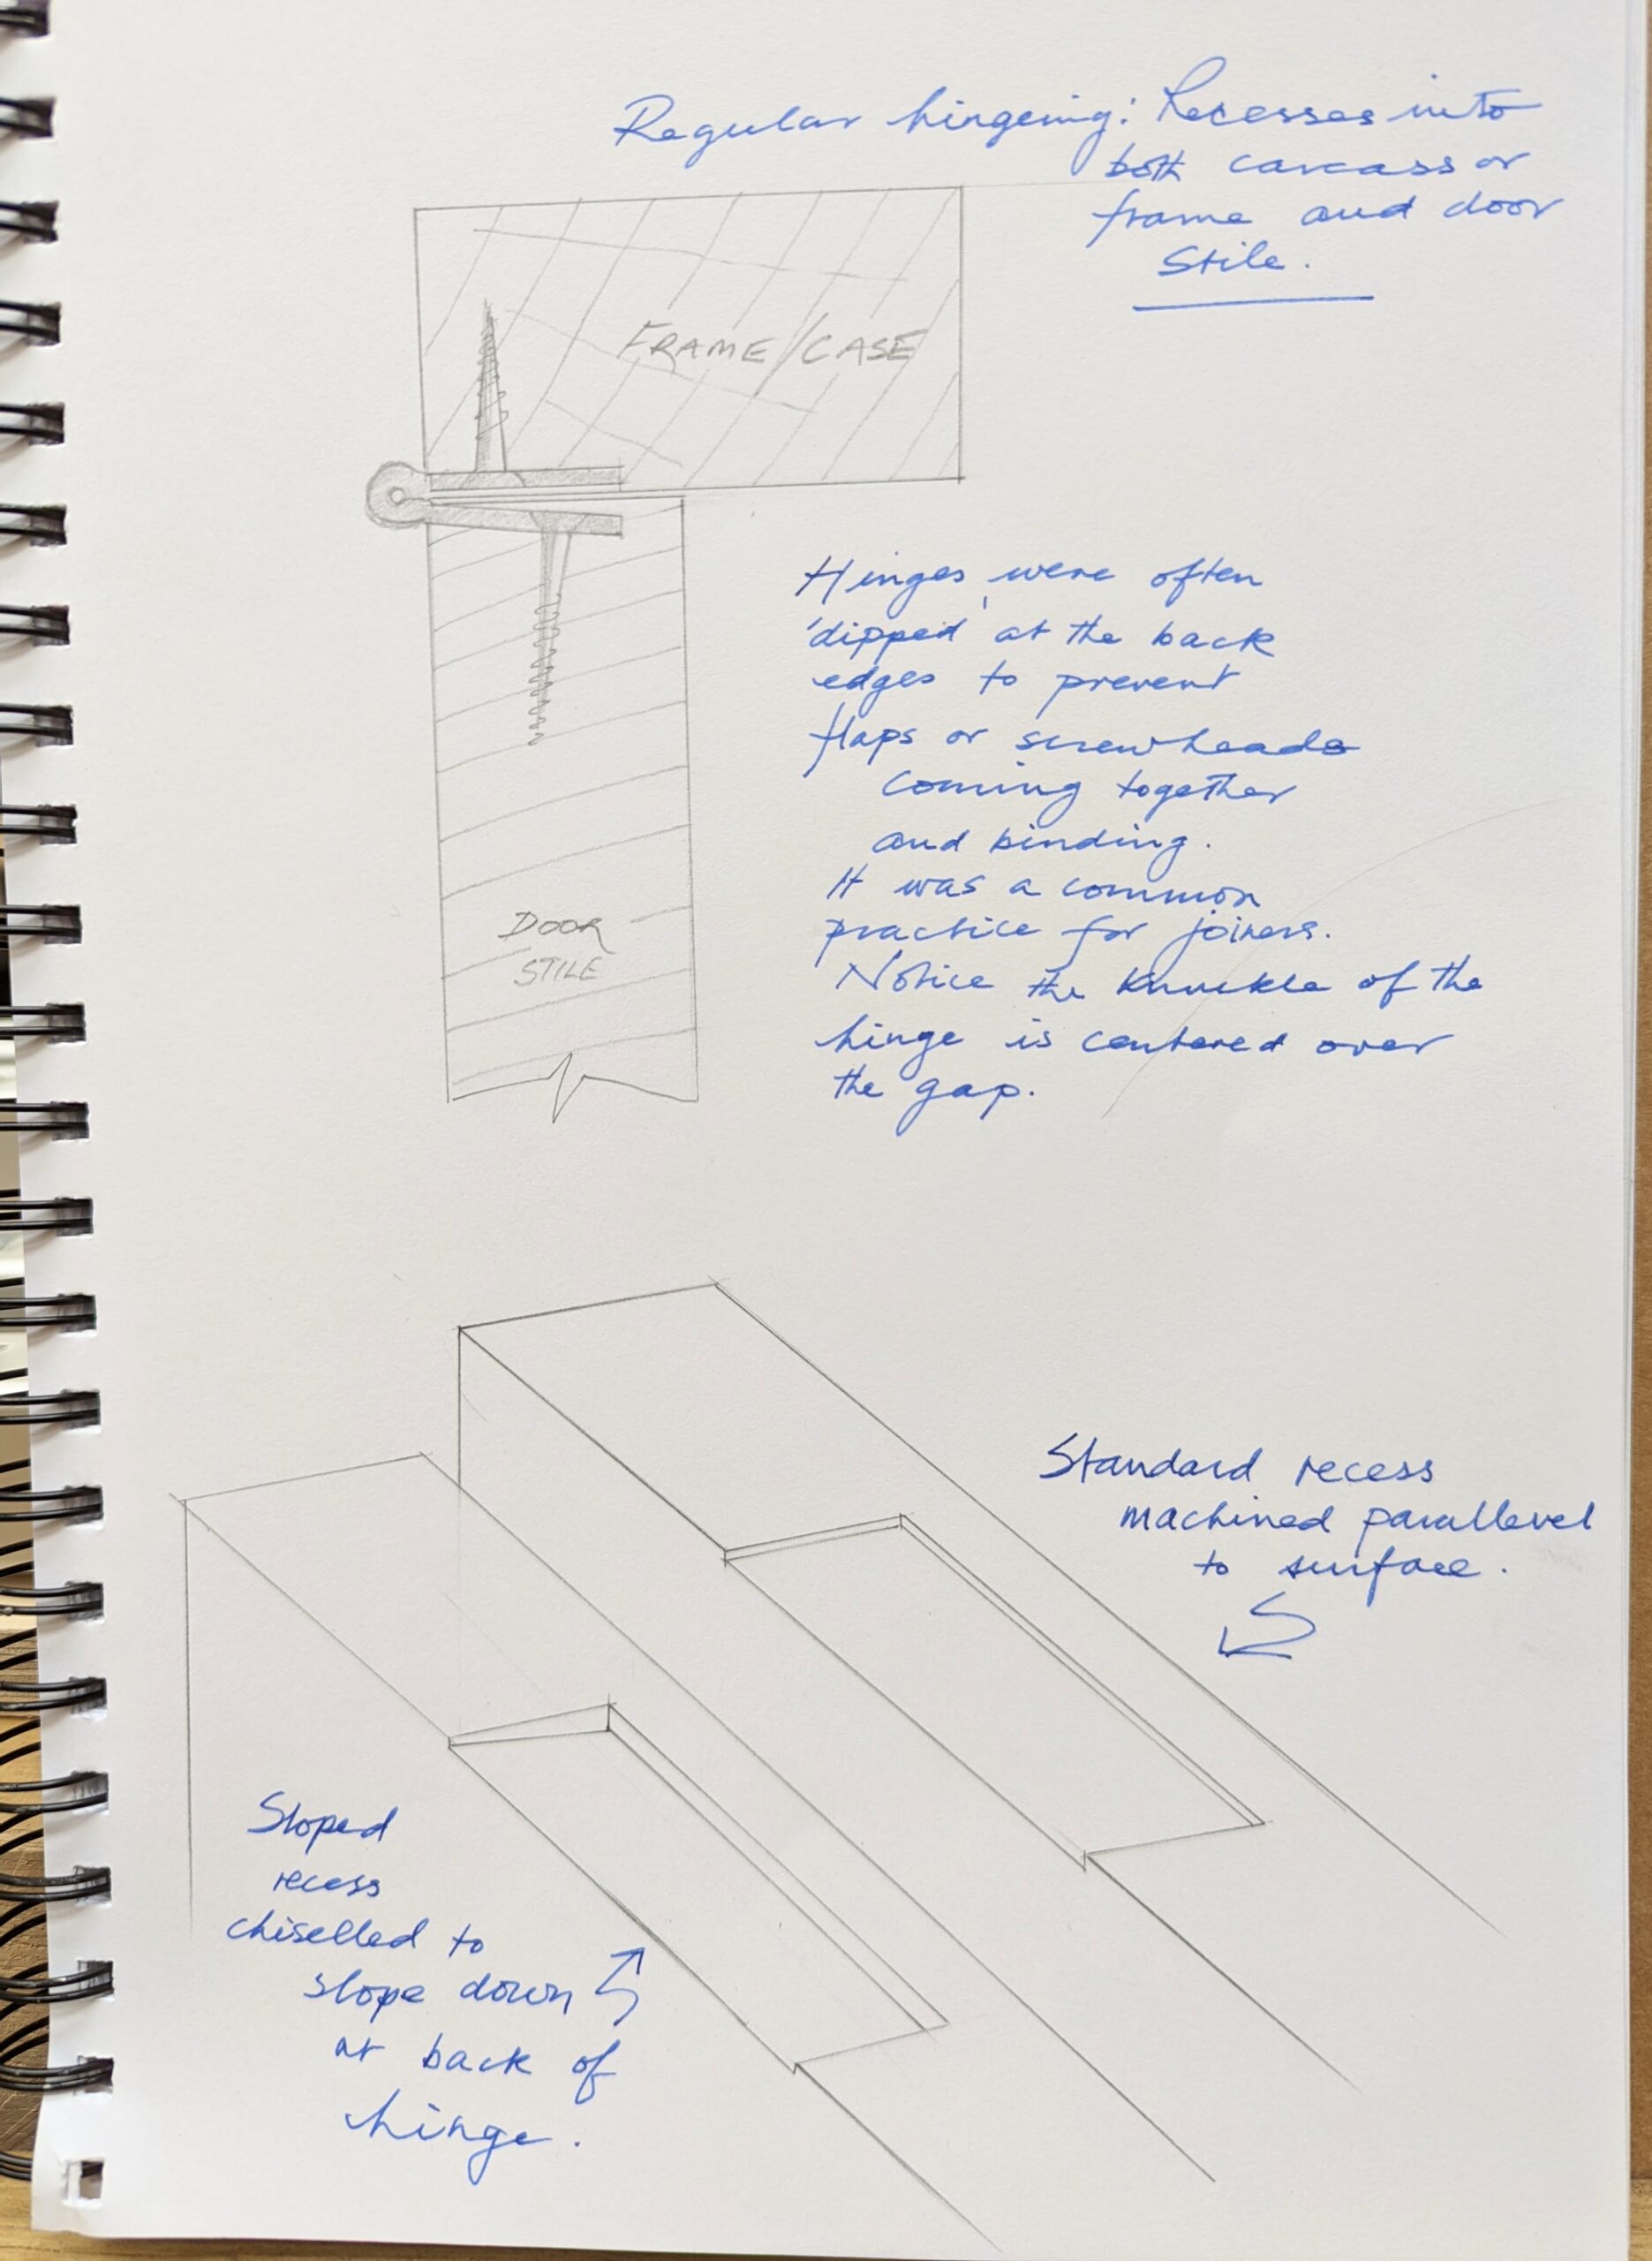 Regular hingeing: Recesses into
both carcass or
frame and door
Stile.
FRAME/CASE
Hinges were often
'dipped' at the back
edges to prevent
flaps or screwheads
coming together
and binding.
It was a common
practice for joiners.
Notice the knuckle of the
hinge is centered over
the gap.
DOOR
STILE
Standard recess
machined parallevel
to surface.
Sloped
recess
chiselled to
slope down
at back of
hinge.